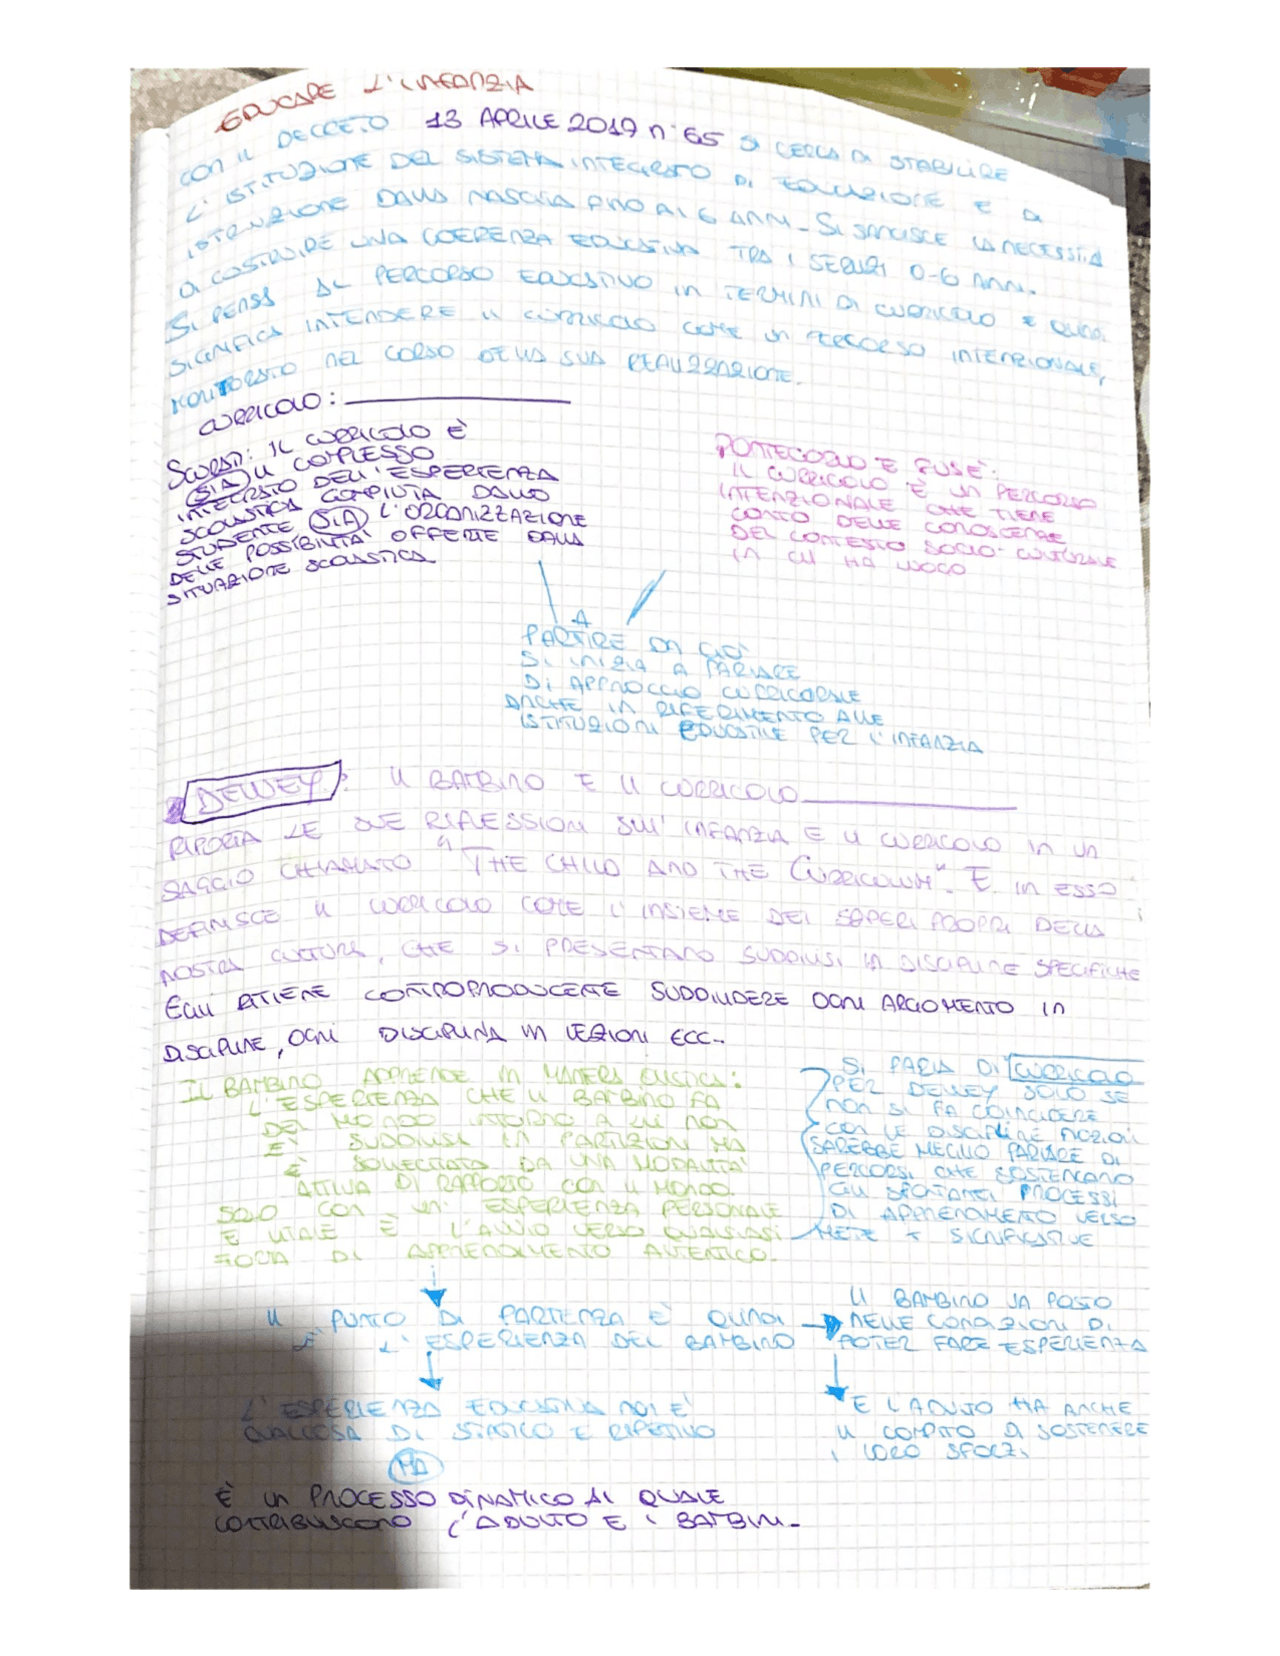 EDUCARE L'INFANZIA
CON IL DECRETO 13 APRILE 2019 n. 65 SI CERCA DI STABILIRE
L'ISTITUZIONE DEL SISTEMA INTEGRATO DI EDUCAZIONE E DI
ISTRUZIONE DALLA NASCITA FINO AI 6 ANNI. SI SANCISCE LA NECESSITÀ
DI COSTRUIRE UNA COERENZA EDUCATIVA TRA I SERVIZI 0-6 ANNI.
SI PENSA AL PERCORSO EDUCATIVO IN TERMINI DI CURRICOLO E QUINDI
SIGNIFICA INTENDERE IL CURRICOLO COME UN PERCORSO INTENZIONALE,
MONITORATO NEL CORSO DELLA SUA REALIZZAZIONE.
CURRICOLO:
SCURATI: IL CURRICOLO È
(SIA) IL COMPLESSO
INTEGRATO DELL'ESPERIENZA
SCOLASTICA COMPIUTA DALLO
STUDENTE (SIA) L'ORGANIZZAZIONE
DELLE POSSIBILITÀ OFFERTE DALLA
SITUAZIONE SCOLASTICA.
PONTECORVO E FUSÈ:
IL CURRICOLO È UN PERCORSO
INTENZIONALE CHE TIENE
CONTO DELLE CONOSCENZE
DEL CONTESTO SOCIO-CULTURALE
IN CUI HA LUOGO
A
PARTIRE DA CIÒ
SI INIZIA A PARLARE
DI APPROCCIO CURRICORALE
ANCHE IN RIFERIMENTO ALLE
ISTITUZIONI EDUCATIVE PER L'INFANZIA
DEWEY: IL BAMBINO E IL CURRICOLO
RIPORTA LE SUE RIFLESSIONI SULL'INFANZIA E IL CURRICOLO IN UN
SAGGIO CHIAMATO "THE CHILD AND THE CURRICULUM". E IN ESSO
DEFINISCE IL CURRICOLO COME L'INSIEME DEI SAPERI PROPRI DELLA
NOSTRA CULTURA, CHE SI PRESENTANO SUDDIVISI IN DISCIPLINE SPECIFICHE
EGLI RITIENE CONTROPRODUCENTE SUDDIVIDERE OGNI ARGOMENTO IN
DISCIPLINE, OGNI DISCIPLINA IN LEZIONI ECC..
IL BAMBINO APPRENDE IN MANIERA OLISTICA:
L'ESPERIENZA CHE IL BAMBINO FA
DEL MONDO INTORNO A LUI NON
E' SUDDIVISA IN PARTIZIONI MA
È SOLLECITATO DA UNA MODALITÀ
ATTIVA DI RAPPORTO CON IL MONDO.
SOLO CON UN' ESPERIENZA PERSONALE
E VITALE È L'AVVIO VERSO QUALSIASI
FORMA DI APPRENDIMENTO AUTENTICO.
SI PARLA DI CURRICOLO
PER DEWEY SOLO SE
NON SI FA COINCIDERE
CON LE DISCIPLINE
SAREBBE MEGLIO PARLARE DI
PERCORSI CHE SOSTENGANO
GLI SPONTANEI PROCESSI
DI APPRENDIMENTO VERSO
METE + SIGNIFICATIVE
IL PUNTO DI PARTENZA È QUINDI
È L'ESPERIENZA DEL BAMBINO
IL BAMBINO VA POSTO
NELLE CONDIZIONI DI
POTER FARE ESPERIENZA
L'ESPERIENZA EDUCATIVA NON È
QUALCOSA DI STATICO E RIPETIVO
MA
È UN PROCESSO DINAMICO AL QUALE
CONTRIBUISCONO L'ADULTO E I BAMBINI.
E L'ADULTO HA ANCHE
IL COMPITO DI SOSTENERE
I LORO SFORZI